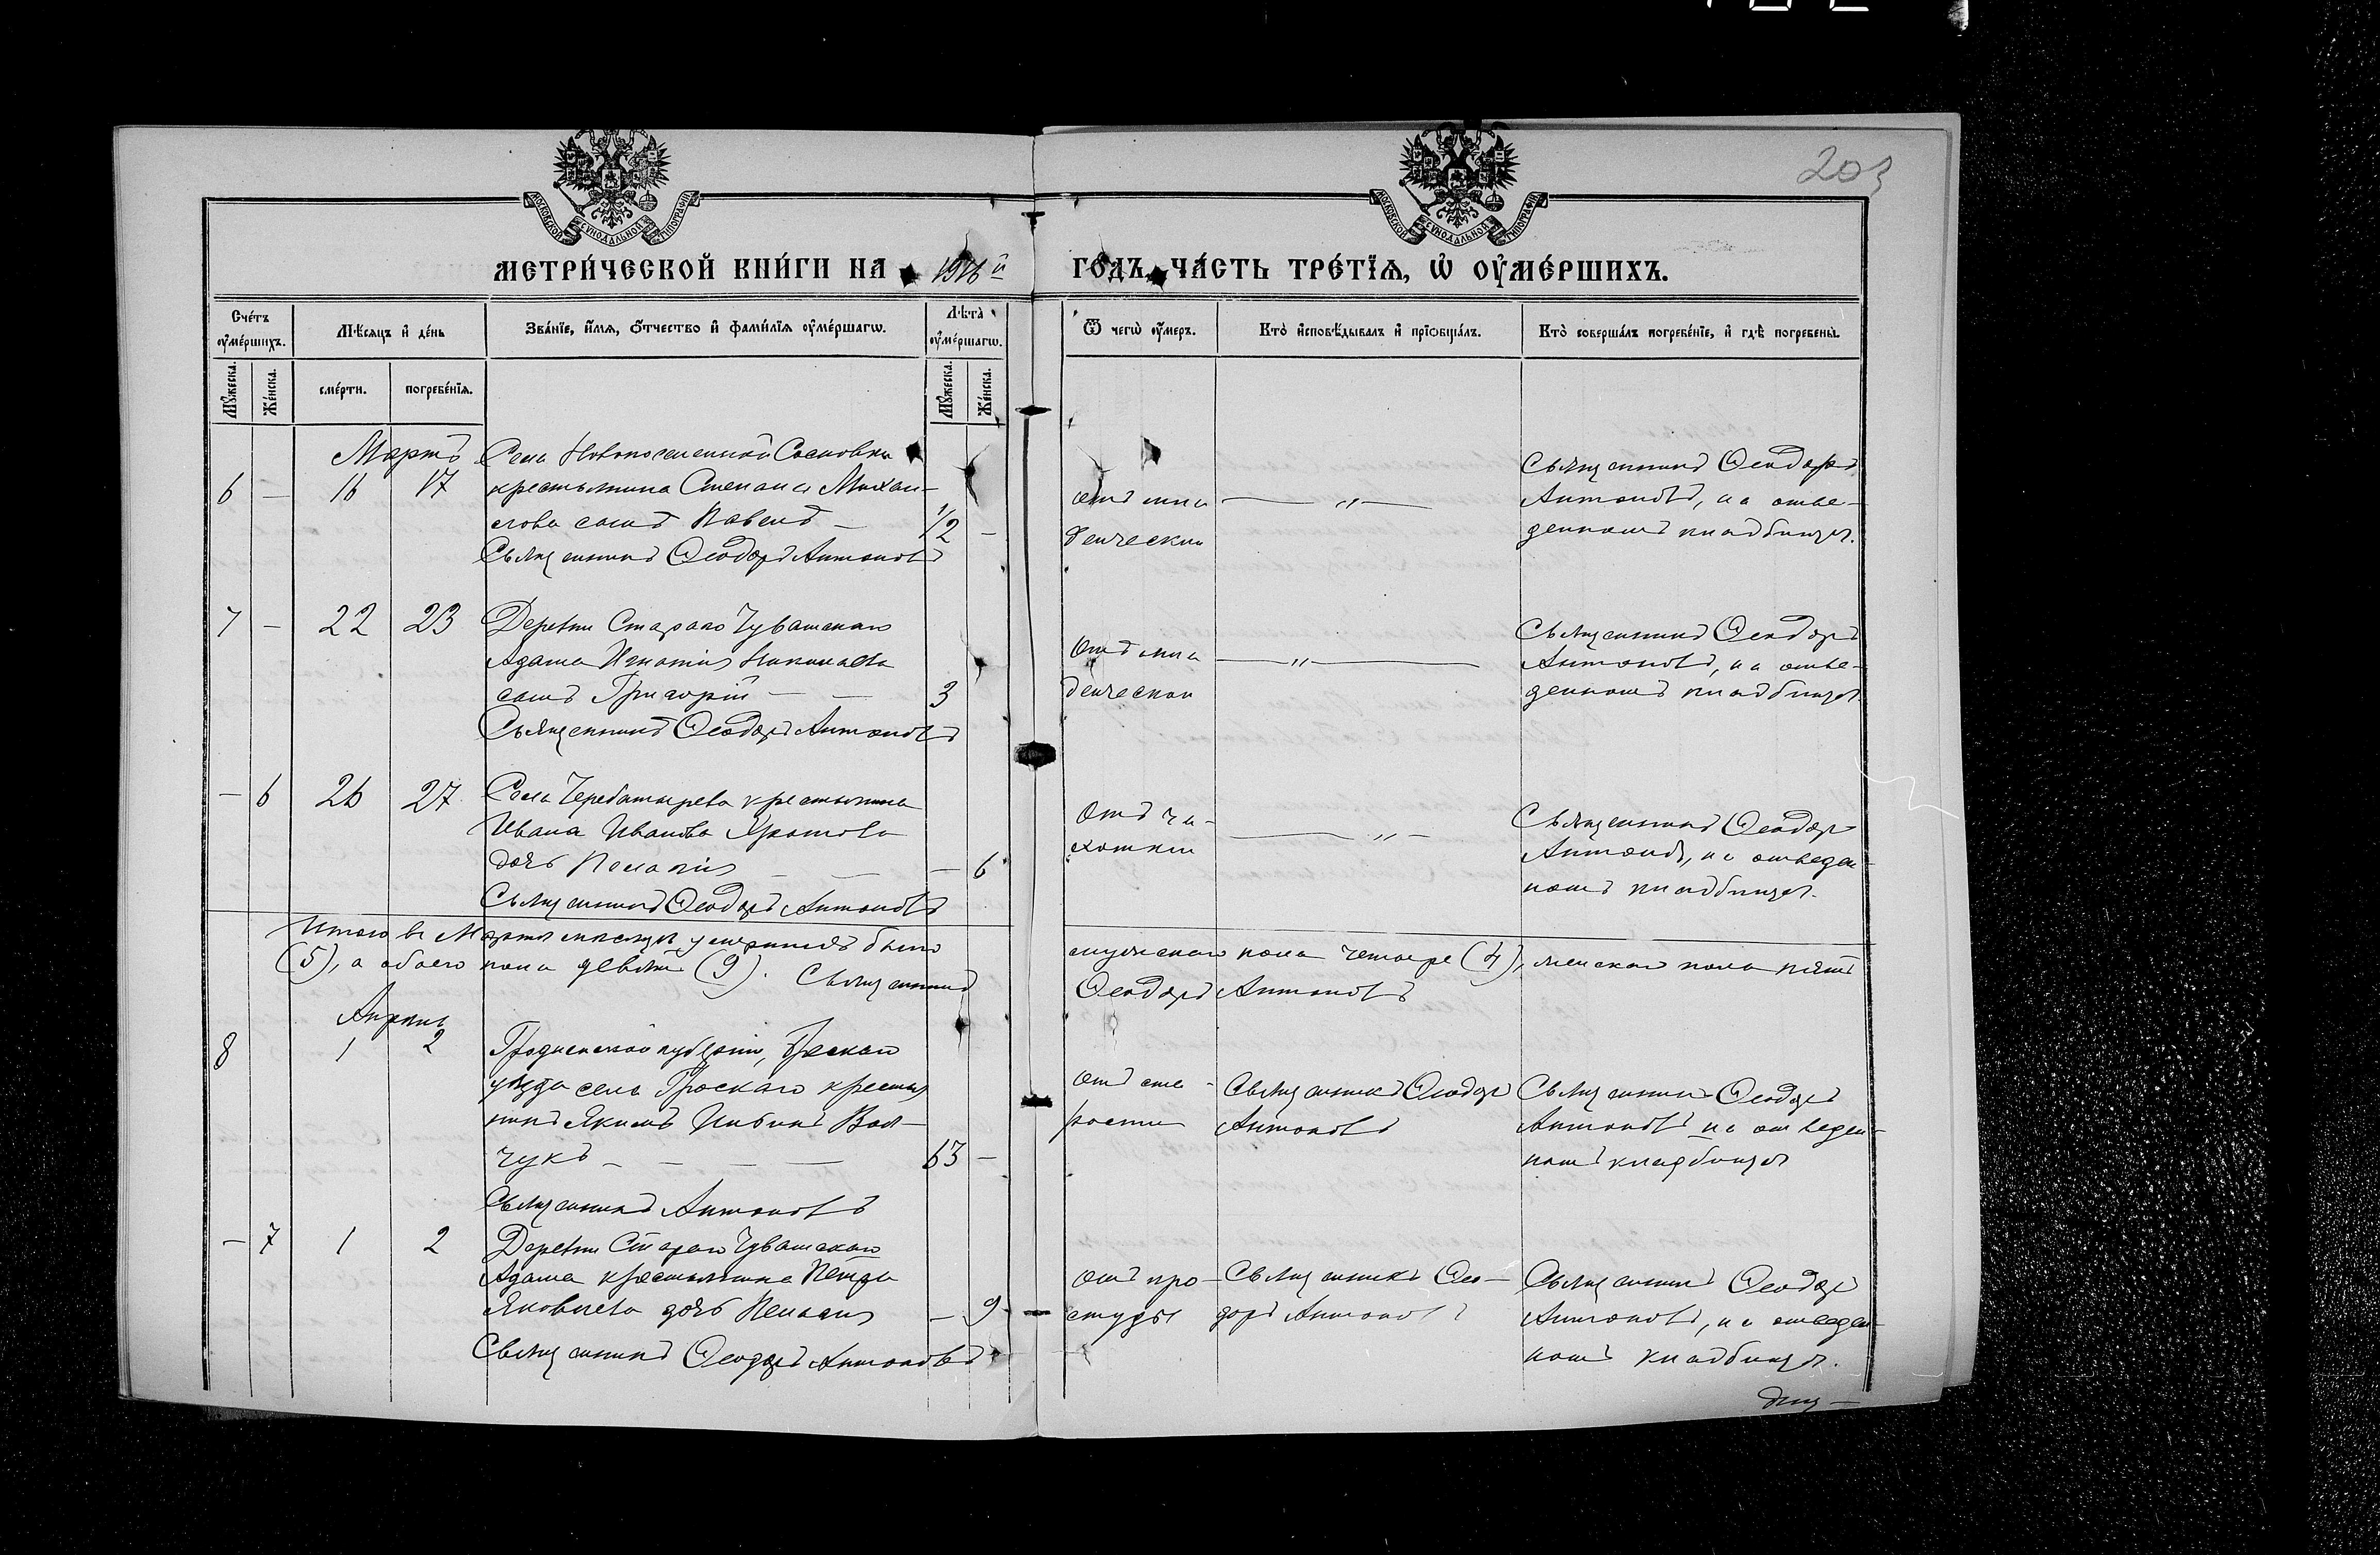 203
МОСКОВСКОЙ СѴНОДАЛЬНОЙ ТИПОГРАФІИ
МОСКОВСКОЙ СѴНОДАЛЬНОЙ ТИПОГРАФІИ
МЕТРИ́ЧЕСКОЙ КНИ́ГИ НА 1916 й ГО́ДЪ, ЧА́СТЬ ТРЕ́ТІѦ, Ѡ҆ ОУ҆МЕ́РШИХЪ.
Сче́тъ оу҆ме́ршихъ.
Мѣ́сяцъ и҆ де́нь
Зва́нїе, и҆́мя, ѻ҆́тчество и҆ фами́лїя оу҆ме́ршагѡ.
Лѣта̀ оу҆ме́ршагѡ.
Ѿ чегѡ̀ оу҆́меръ.
Кто̀ и҆сповѣ́дывалъ и҆ прїѡбща́лъ.
Кто̀ соверша́лъ погребе́нїе, и҆ гдѣ̀ погребены̀.
Мꙋ́жеска.
Же́нска.
сме́рти.
погребе́нїѧ.
Мꙋ́жеска.
Же́нска.
Мартъ
6 — 16 17
Села Новопоселенной Сосновки
крестьянина Степана Михаи-
лова сынъ Павелъ — 1/2 —
Священникъ Ѳеодоръ Антоновъ
отъ мла
денческой
— „ —
Священникъ Ѳеодоръ
Антоновъ, на отве-
денномъ кладбищѣ.
7 — 22 23
Деревни Стараго Чувашскаго
Адама Игнатія Николаева
сынъ Григорій — — 3
Священникъ Ѳеодоръ Антоновъ
Отъ мла
денческой
— „ —
Священникъ Ѳеодоръ
Антоновъ, на отве-
денномъ кладбищѣ.
— 6 26 27
Села Черебатырева крестьянина
Ивана Иванова
дочь Пелагія — — — 6
Священникъ Ѳеодоръ Антоновъ
Отъ ча-
хотки
— „ —
Священникъ Ѳеодоръ
Антоновъ, на отведен-
номъ кладбищѣ.
Итого въ Мартѣ мѣсяцѣ умершихъ было мужескаго пола четыре (4), женскаго пола пять
(5), а обоего пола девять (9). Священникъ Ѳеодоръ Антоновъ
Апрѣль
8 1 2
Гродненской губерніи, Брескаго
уѣзда села крестья
нинъ Якимъ Вол-
чукъ — — — — 63 —
Священникъ Антоновъ
отъ ста-
рости
Священникъ Ѳеодоръ
Антоновъ
Священникъ Ѳеодоръ
Антоновъ на отведен-
номъ кладбищѣ
— 7 1 2
Деревни Стараго Чувашскаго
Адама крестьянина Петра
Яковлева дочь Пелагія — 9
Священникъ Ѳеодоръ Антоновъ
отъ про-
студы
Священникъ Ѳео-
доръ Антоновъ
Священникъ Ѳеодоръ
Антоновъ, на отведен-
номъ кладбищѣ.